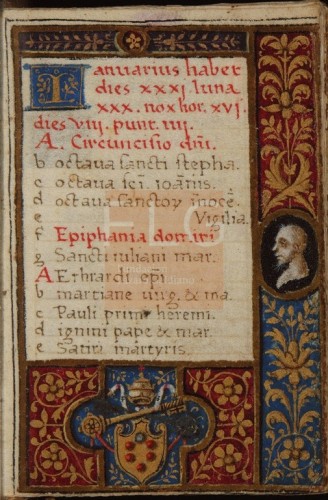 Ianuarius habet
dies xxxi luna
xxx. nox hor. xvi.
dies viii. punt. iiii.
A. Circuncisio dñi.
b octava sancti stepha.
c octava sci. ioañis.
d octava sanctoȝ inocē.
e Vigilia.
f Epiphania domini
g Sancti iuliani mar.
A Erhardi epi.
b martiane virg. & ma.
c Pauli primi heremi.
d igínii pape & mar.
e Satiri martyris.